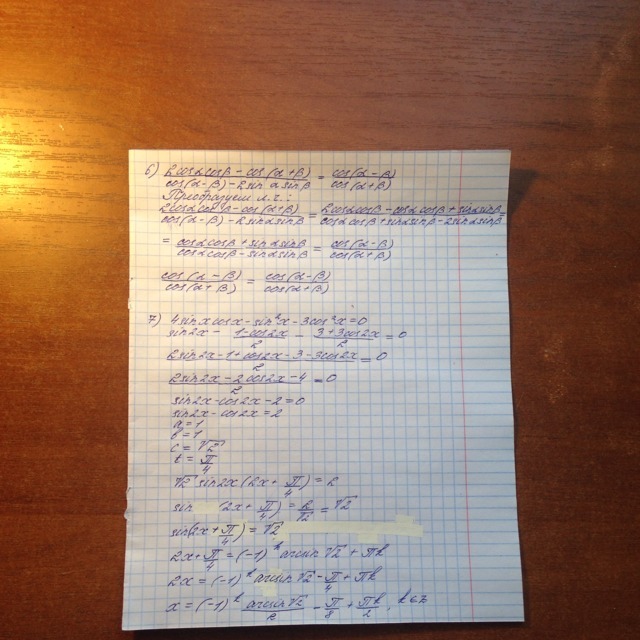 6) (2cosαcosβ - cos(α+β))/(cos(α-β) - 2sinαsinβ) = cos(α-β)/cos(α+β)
Преобразуем л.ч.:
(2cosαcosβ - cos(α+β))/(cos(α-β) - 2sinαsinβ) = (2cosαcosβ - cosαcosβ + sinαsinβ)/(cosαcosβ + sinαsinβ - 2sinαsinβ) =
= (cosαcosβ + sinαsinβ)/(cosαcosβ - sinαsinβ) = cos(α-β)/cos(α+β)
cos(α-β)/cos(α+β) = cos(α-β)/cos(α+β)
7) 4sinxcosx - sin²x - 3cos²x = 0
sin2x - (1-cos2x)/2 - (3+3cos2x)/2 = 0
(2sin2x - 1 + cos2x - 3 - 3cos2x)/2 = 0
(2sin2x - 2cos2x - 4)/2 = 0
sin2x - cos2x - 2 = 0
sin2x - cos2x = 2
a = 1
b = 1
c = √2
t = π/4
√2 sin2x(2x + π/4) = 2
sin (2x + π/4) = 2/√2 = √2
sin(2x + π/4) = √2
2x + π/4 = (-1)^k arcsin√2 + πk
2x = (-1)^k arcsin√2 - π/4 + πk
x = (-1)^k (arcsin√2)/2 - π/8 + πk/2, k∈Z